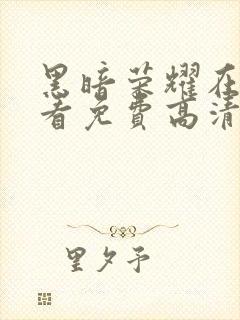 黑暗荣耀在
看免费高清
里夕予